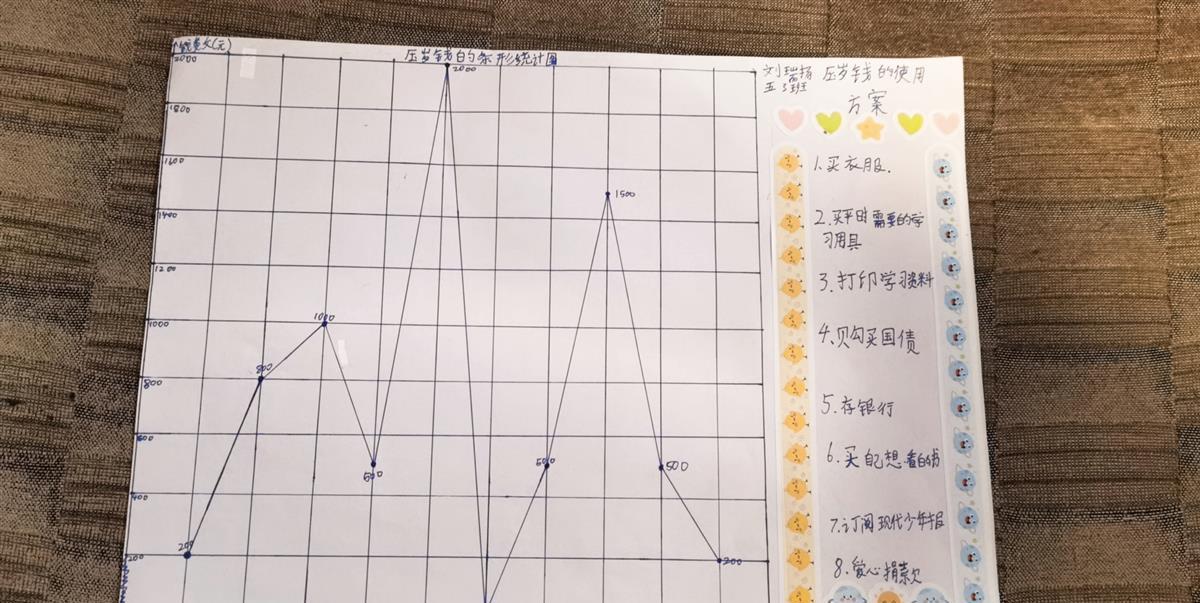 压岁钱的条形统计图
2000
1800
1600
1400
1200
1000
800
600
400
200
200
800
1000
500
2000
500
1500
500
200
压岁钱的使用
方案
五3班
1.买衣服.
2.买平时需要的学
习用具
3.打印学习资料
4.购买国债
5.存银行
6.买自己想看的书
7.订阅现代少年报
8.爱心捐款